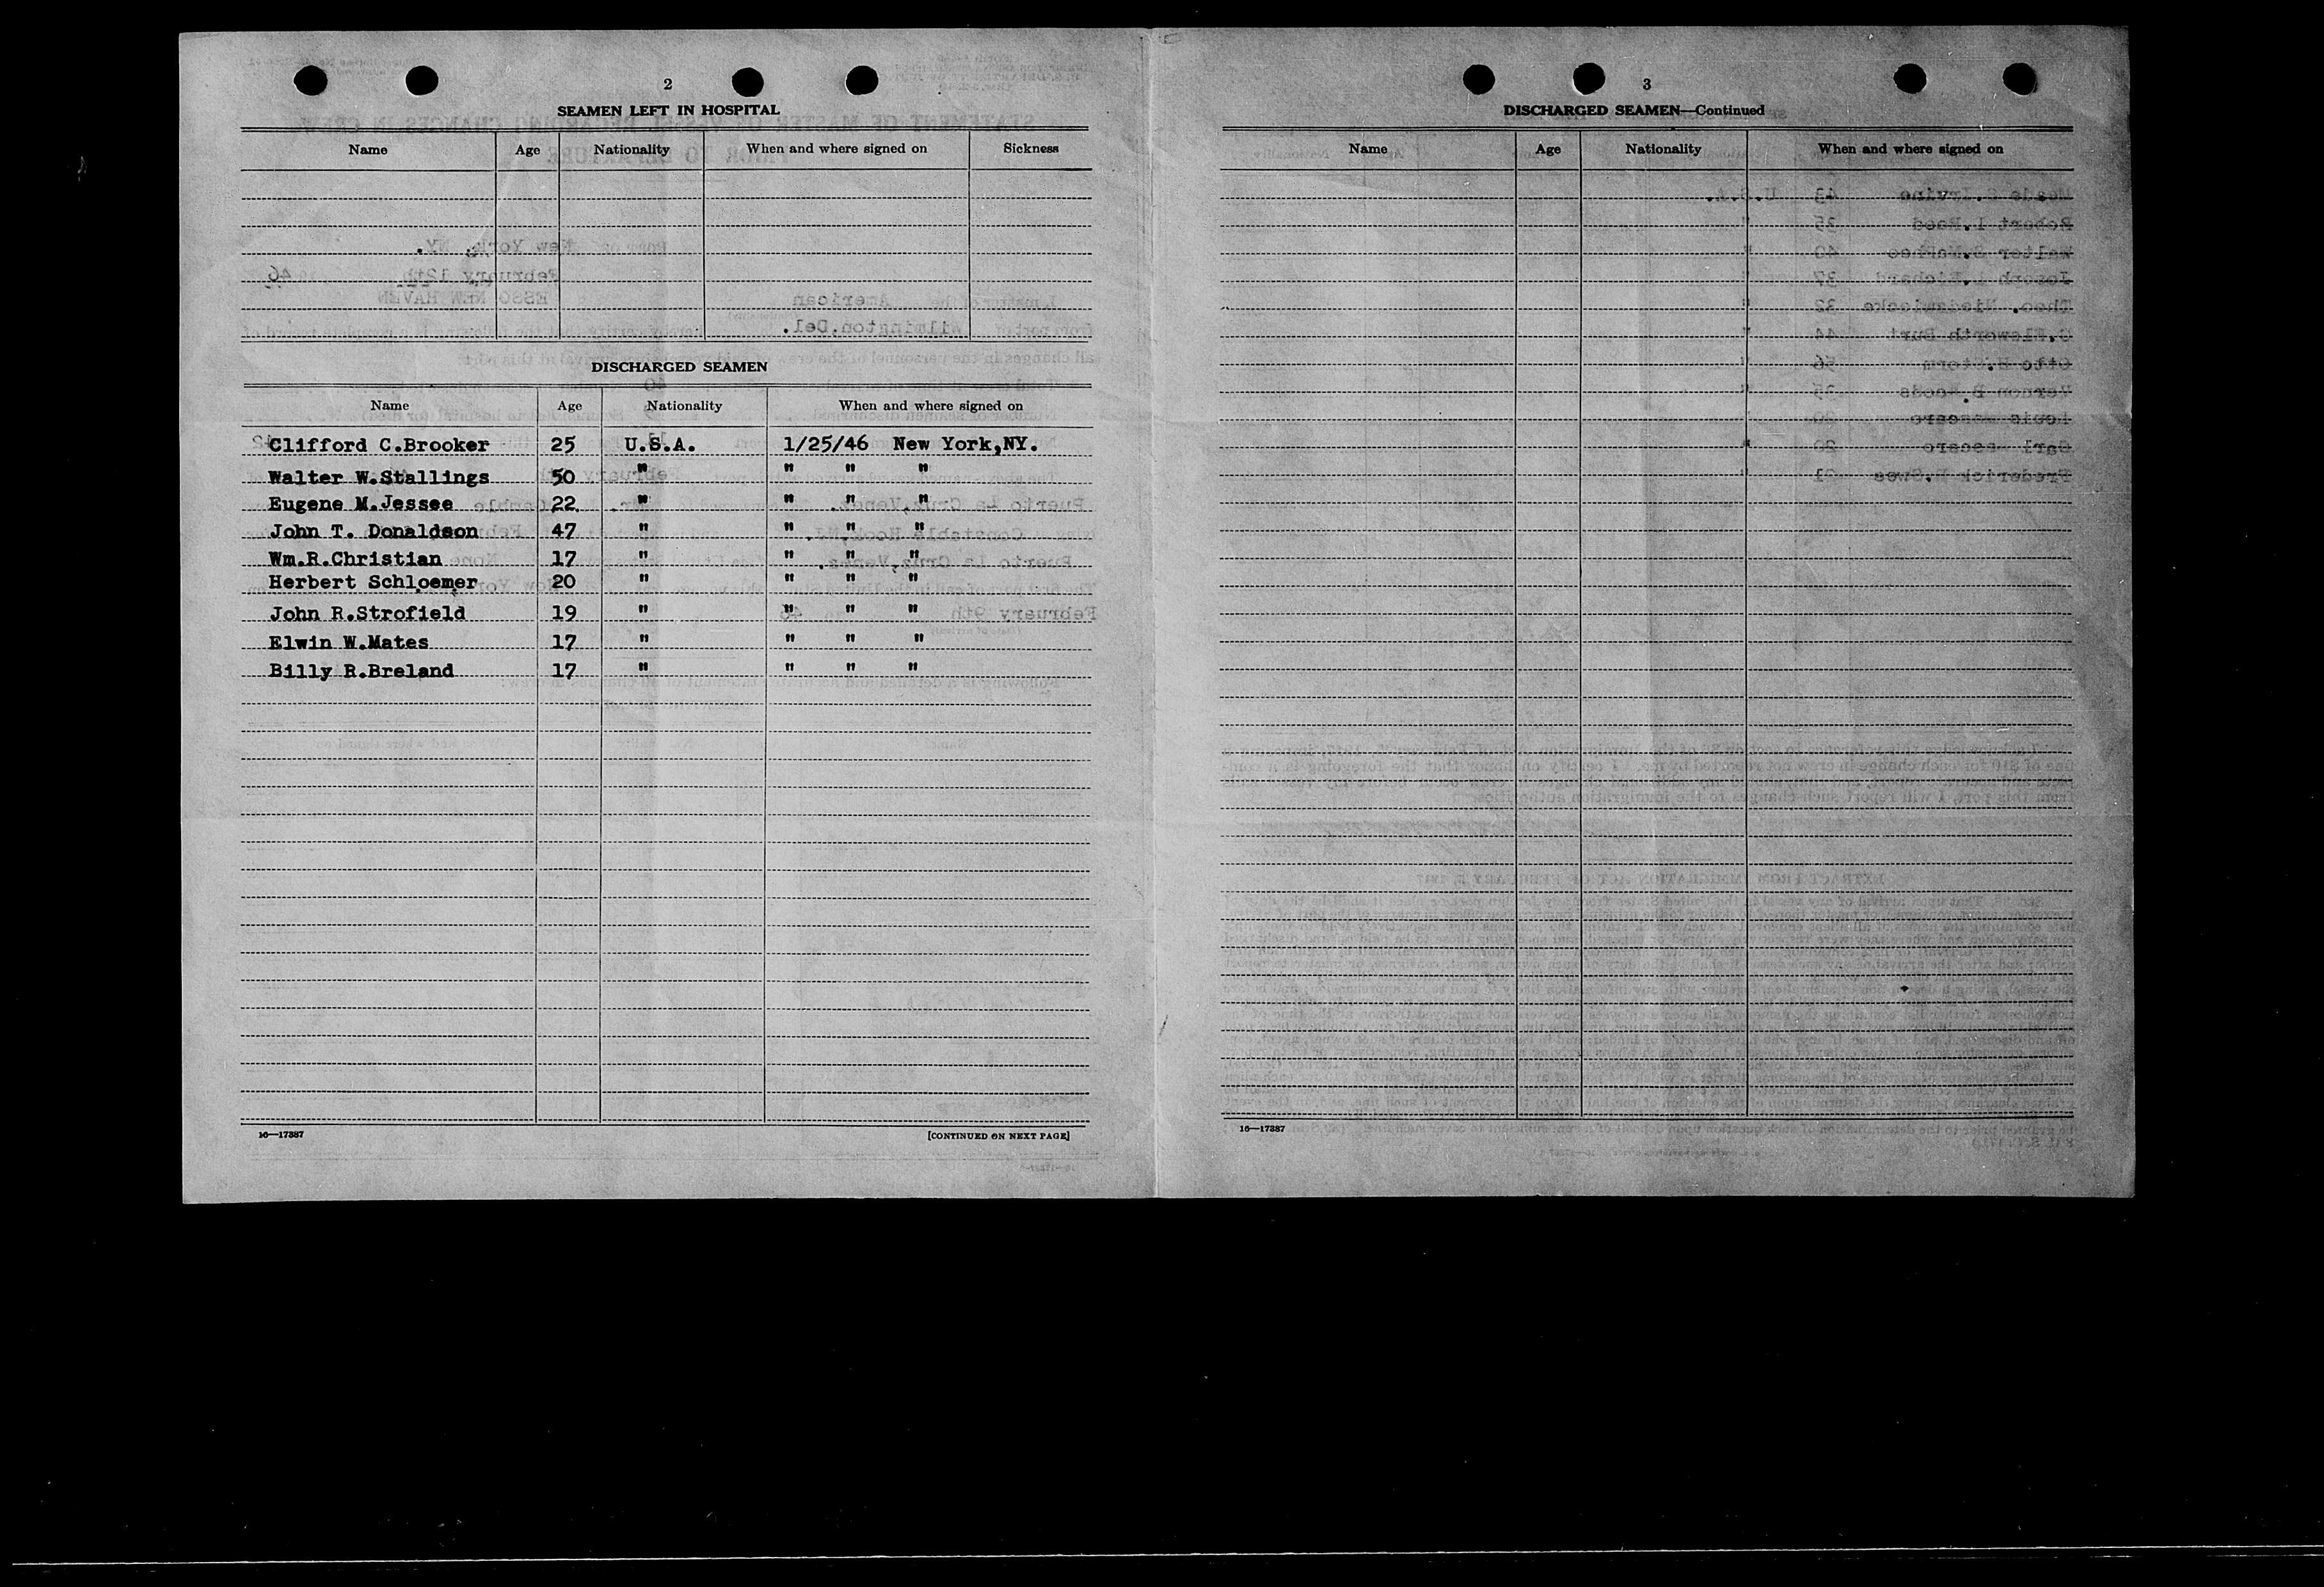 2
SEAMEN LEFT IN HOSPITAL
Name Age Nationality When and where signed on Sickness
DISCHARGED SEAMEN
Name Age Nationality When and where signed on
Clifford C.Brooker 25 U.S.A. 1/25/46 New York,NY.
Walter W.Stallings 50 " " " "
Eugene M.Jessee 22 " " " "
John T. Donaldson 47 " " " "
Wm.R.Christian 17 " " " "
Herbert Schloemer 20 " " " "
John R.Strofield 19 " " " "
Elwin W.Mates 17 " " " "
Billy R.Breland 17 " " " "
16—17387 [CONTINUED ON NEXT PAGE]
3
DISCHARGED SEAMEN—Continued
Name Age Nationality When and where signed on
16—17387